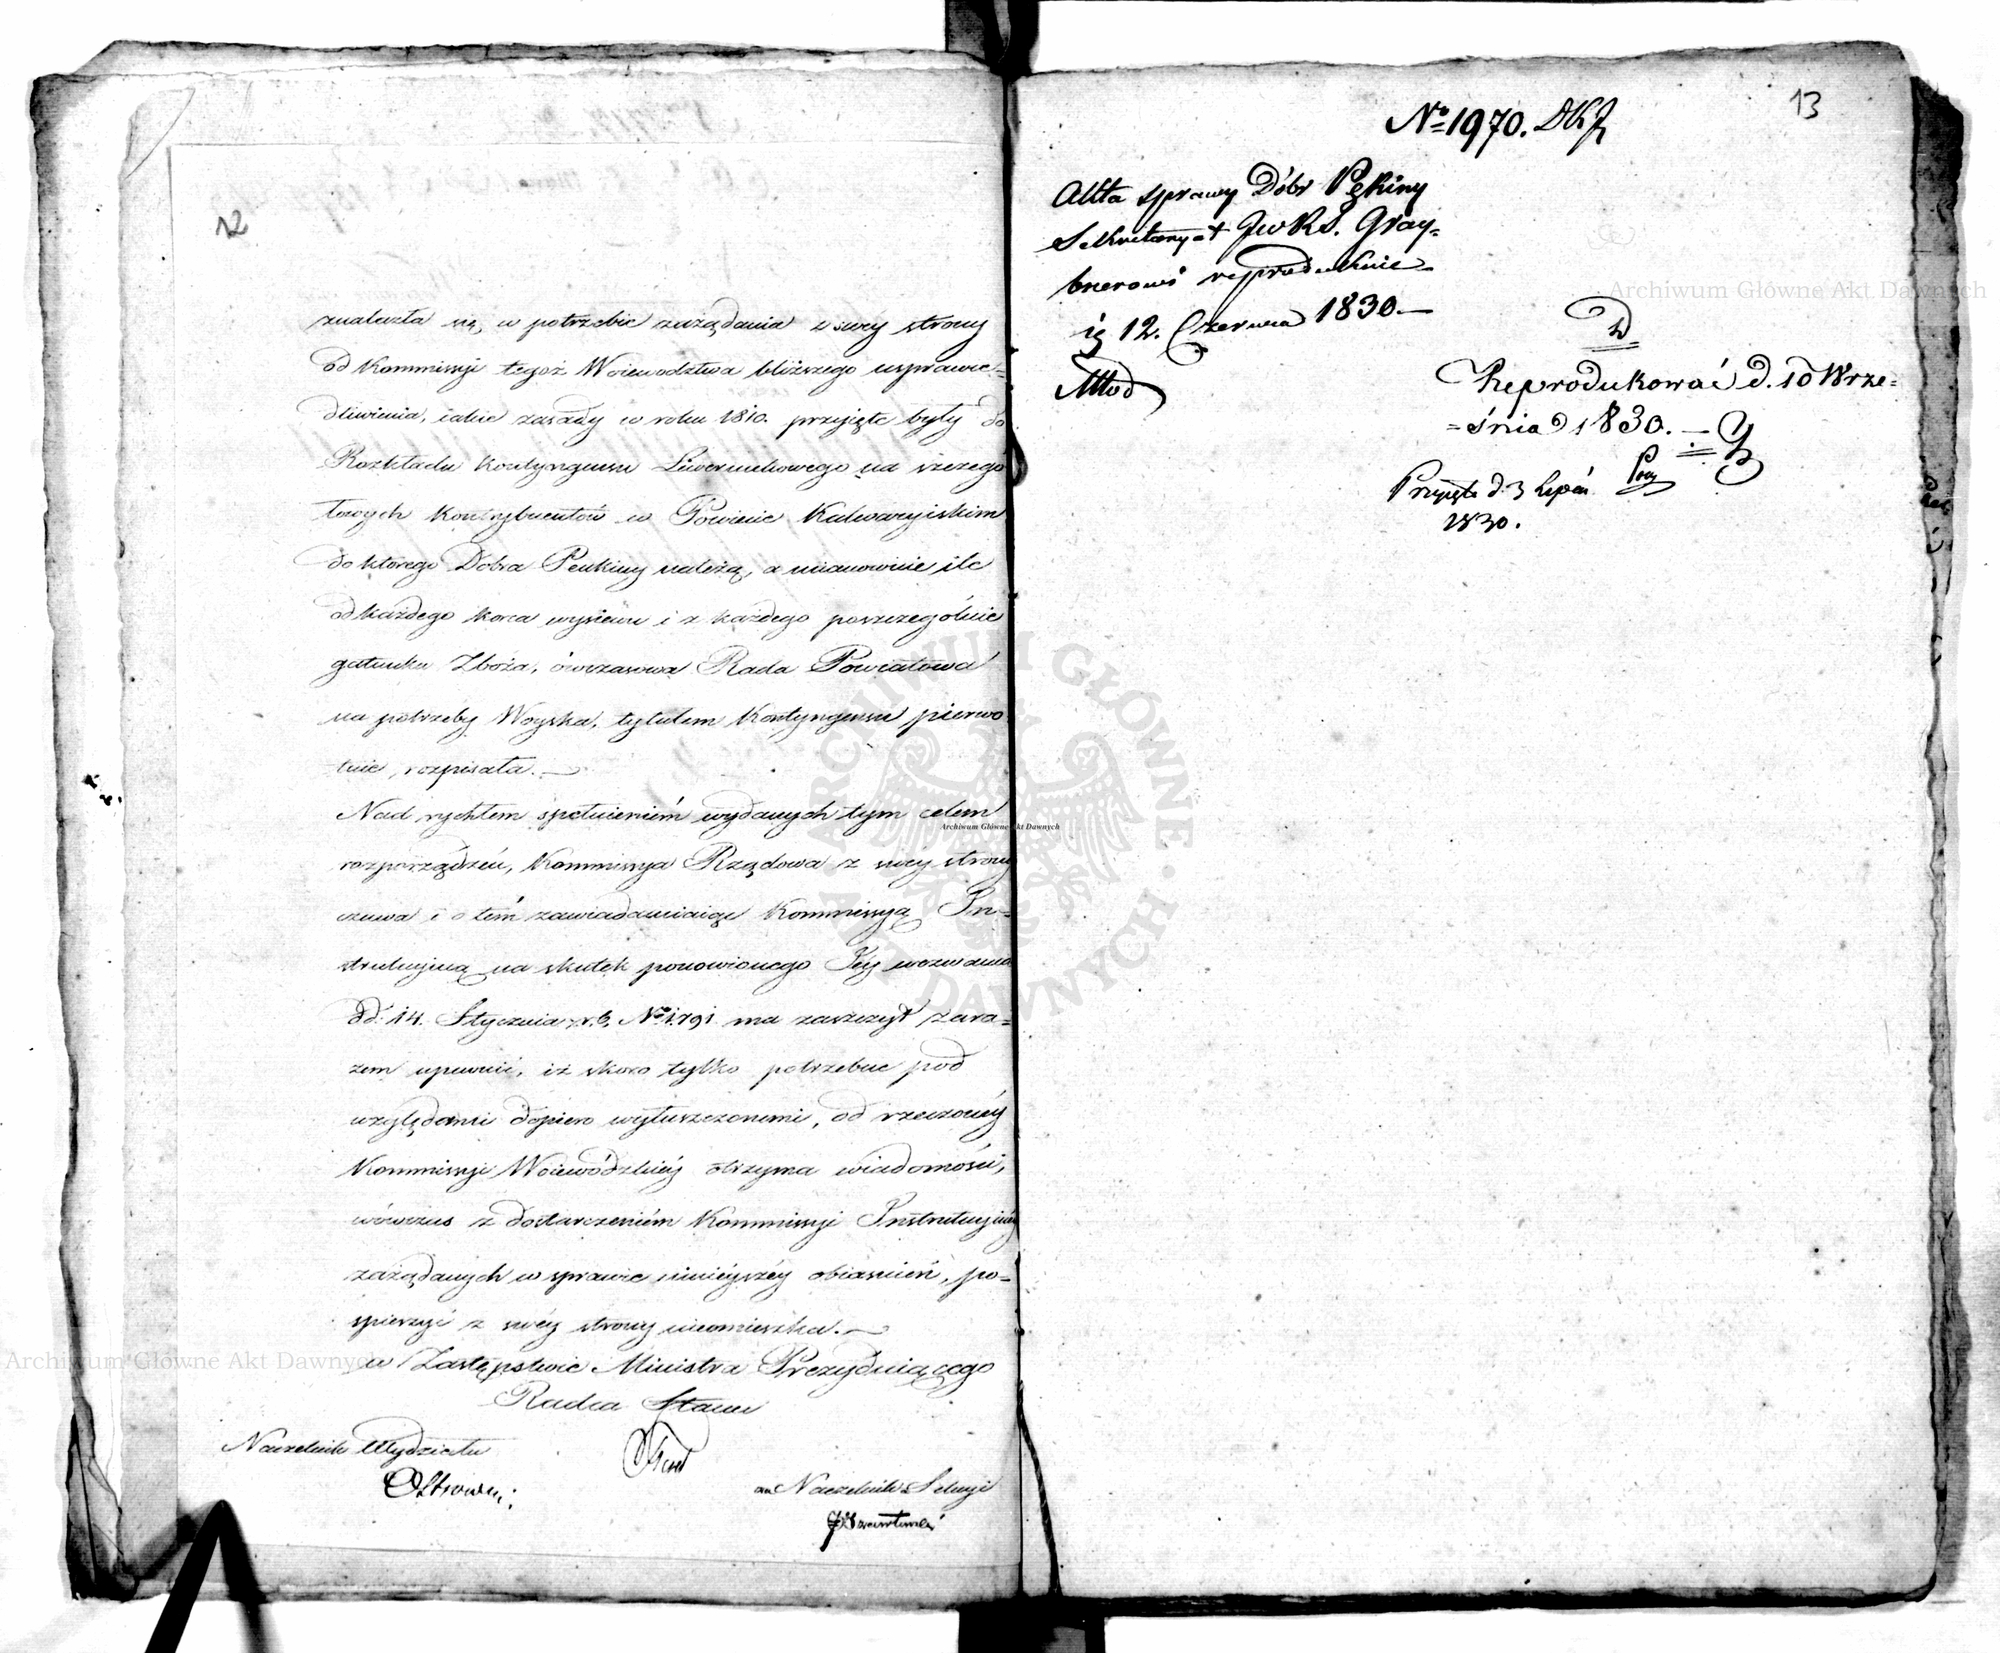 12
znalazła się, w potrzebie zażądania z swey strony
od Kommissyi tegoż Woiewodztwa bliższego usprawie-
dliwienia, iakie zasady w roku 1810. przyięte były do
Rozkładu kontyngensu Liwerunkowego na szczegó
łowych Kontrybuentów w Powiecie Kalwaryiskim
do ktorego Dobra Penkiny należą, a mianowicie ile
od każdego korca wysiewu i z każdego poszczególnie
gatunku Zboża, ówczasowa Rada Powiatowa
na potrzeby Woyska, tytułem Kontyngensu pierwo
tnie, rozpisała.—
Nad rychłem spełnieniém wydanych tym celem
rozporządzeń, Kommissya Rządowa z swéy strony
czuwa i o tém zawiadamiaiąc Kommissyą In-
strukcyiną na skutek ponowionego Jéy wezwania
dd. 14. Stycznia r. b. No 1791 ma zaszczyt zara-
zem upewnić, iż skoro tylko potrzebne pod
względami dopiero wyłuszczonemi, od rzeczonéy
Kommissyi Woiewódzkiéy otrzyma wiadomości,
wówczas z dostarczeniém Kommissyi Instrukcyinéy
zażądanych w sprawie ninieyszéy obiaśnień, po-
spieszyć z swéy strony nieomieszka.—
w Zastępstwie Ministra Prezyduiącego
Radca Stanu
Naczelnik Wydziału
Naczelnik Sekcyi
13
No 1970. DKJ
Akta sprawy Dóbr Pękiny
Sekretaryat JwRS. Gray-
bnerowi reprodukuie
12. Czerwca 1830.—
Reprodukować d. 10 Wrze-
-śnia 1830.—
Przyięte d. 3 Lipca
1830.
Archiwum Główne Akt Dawnych
Archiwum Główne Akt Dawnych
Archiwum Główne Akt Dawnych
ARCHIWUM GŁÓWNE AKT DAWNYCH